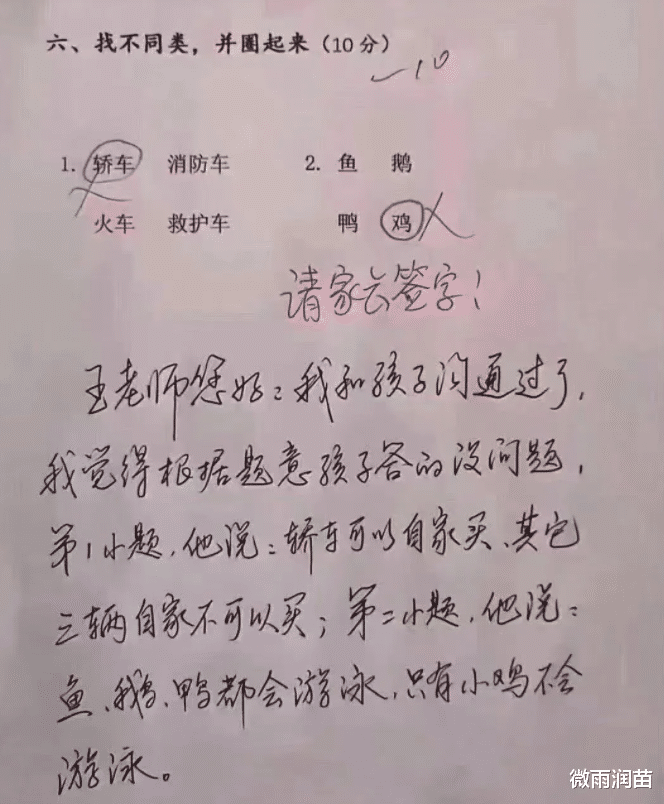 六、找不同类，并圈起来（10分）
-10
1. 轿车 消防车 2. 鱼 鹅
火车 救护车 鸭 鸡
请家长签字！
王老师您好：我和孩子沟通过了，
我觉得根据题意孩子答的没问题，
第1小题，他说：轿车可以自家买、其它
三辆自家不可以买；第二小题，他说：
鱼、鹅、鸭都会游泳，只有小鸡不会
游泳。
微雨润苗